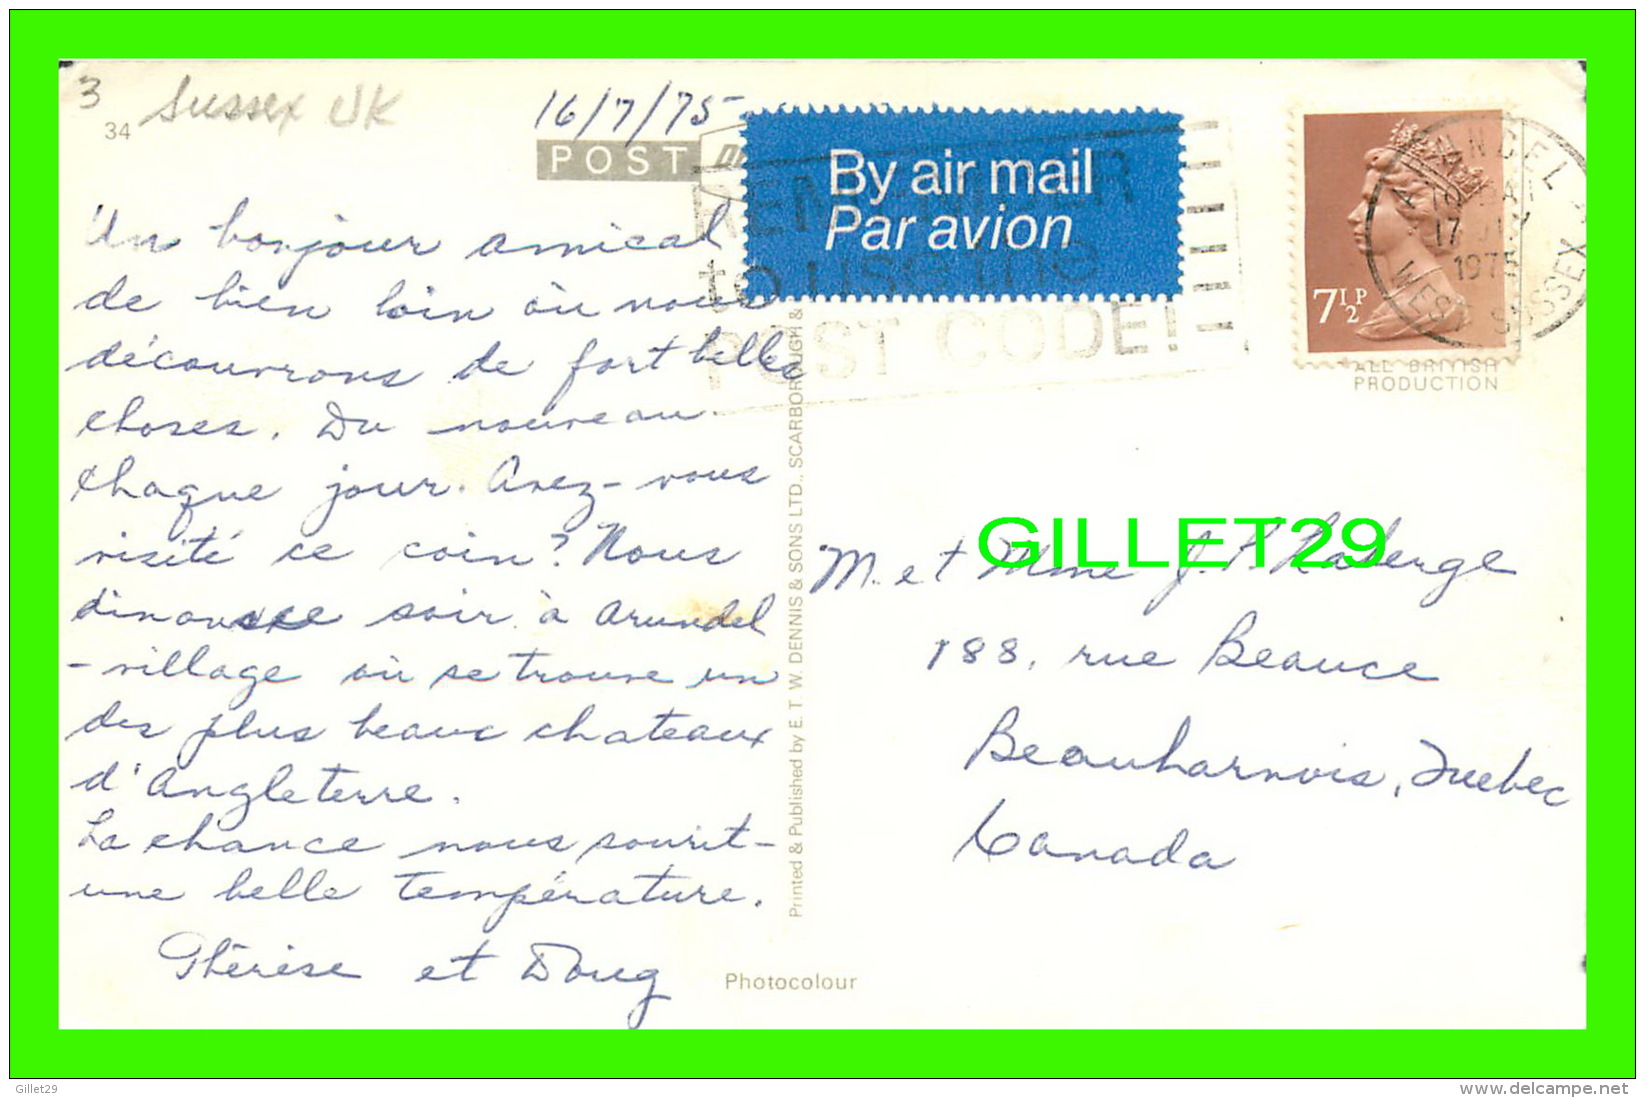 3
34 Sussex UK
16/7/75
POST
By air mail
Par avion
REMEMBER
to use the
POST CODE!
ARUNDEL
17 JLY
1975
WEST SUSSEX
7½P
ALL BRITISH
PRODUCTION
Un bonjour amical
de bien loin où nous
découvrons de fort belles
choses. Du nouveau
chaque jour. Avez-vous
visité ce coin? Nous
dinons ce soir à Arundel
- village où se trouve un
des plus beaux chateaux
d'Angleterre.
La chance nous sourit -
une belle température.
Thérèse et Doug
Printed & Published by E. T. W. DENNIS & SONS LTD., SCARBOROUGH &
Photocolour
GILLET29
M. et Mme J. P. Laberge
188, rue Beauce
Beauharnois, Quebec
Canada
Gillet29
www.delcampe.net